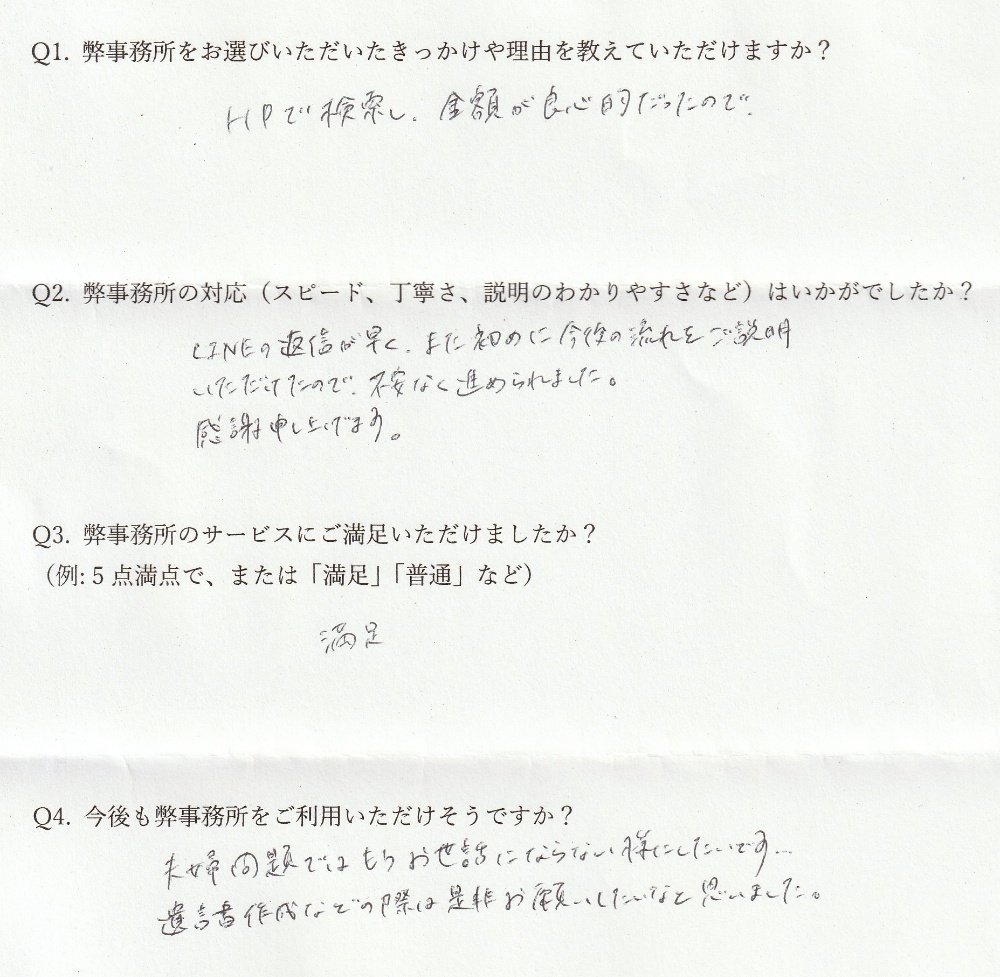 Q1. 弊事務所をお選びいただいたきっかけや理由を教えていただけますか？
HPで検索し、金額が良心的だったので。
Q2. 弊事務所の対応（スピード、丁寧さ、説明のわかりやすさなど）はいかがでしたか？
LINEの返信が早く、また初めに今後の流れをご説明
いただけたので、不安なく進められました。
感謝申し上げます。
Q3. 弊事務所のサービスにご満足いただけましたか？
（例: 5 点満点で、または「満足」「普通」など）
満足
Q4. 今後も弊事務所をご利用いただけそうですか？
夫婦問題ではもうお世話にならない様にしたいです…
遺言書作成などの際は是非お願いしたいなと思いました。